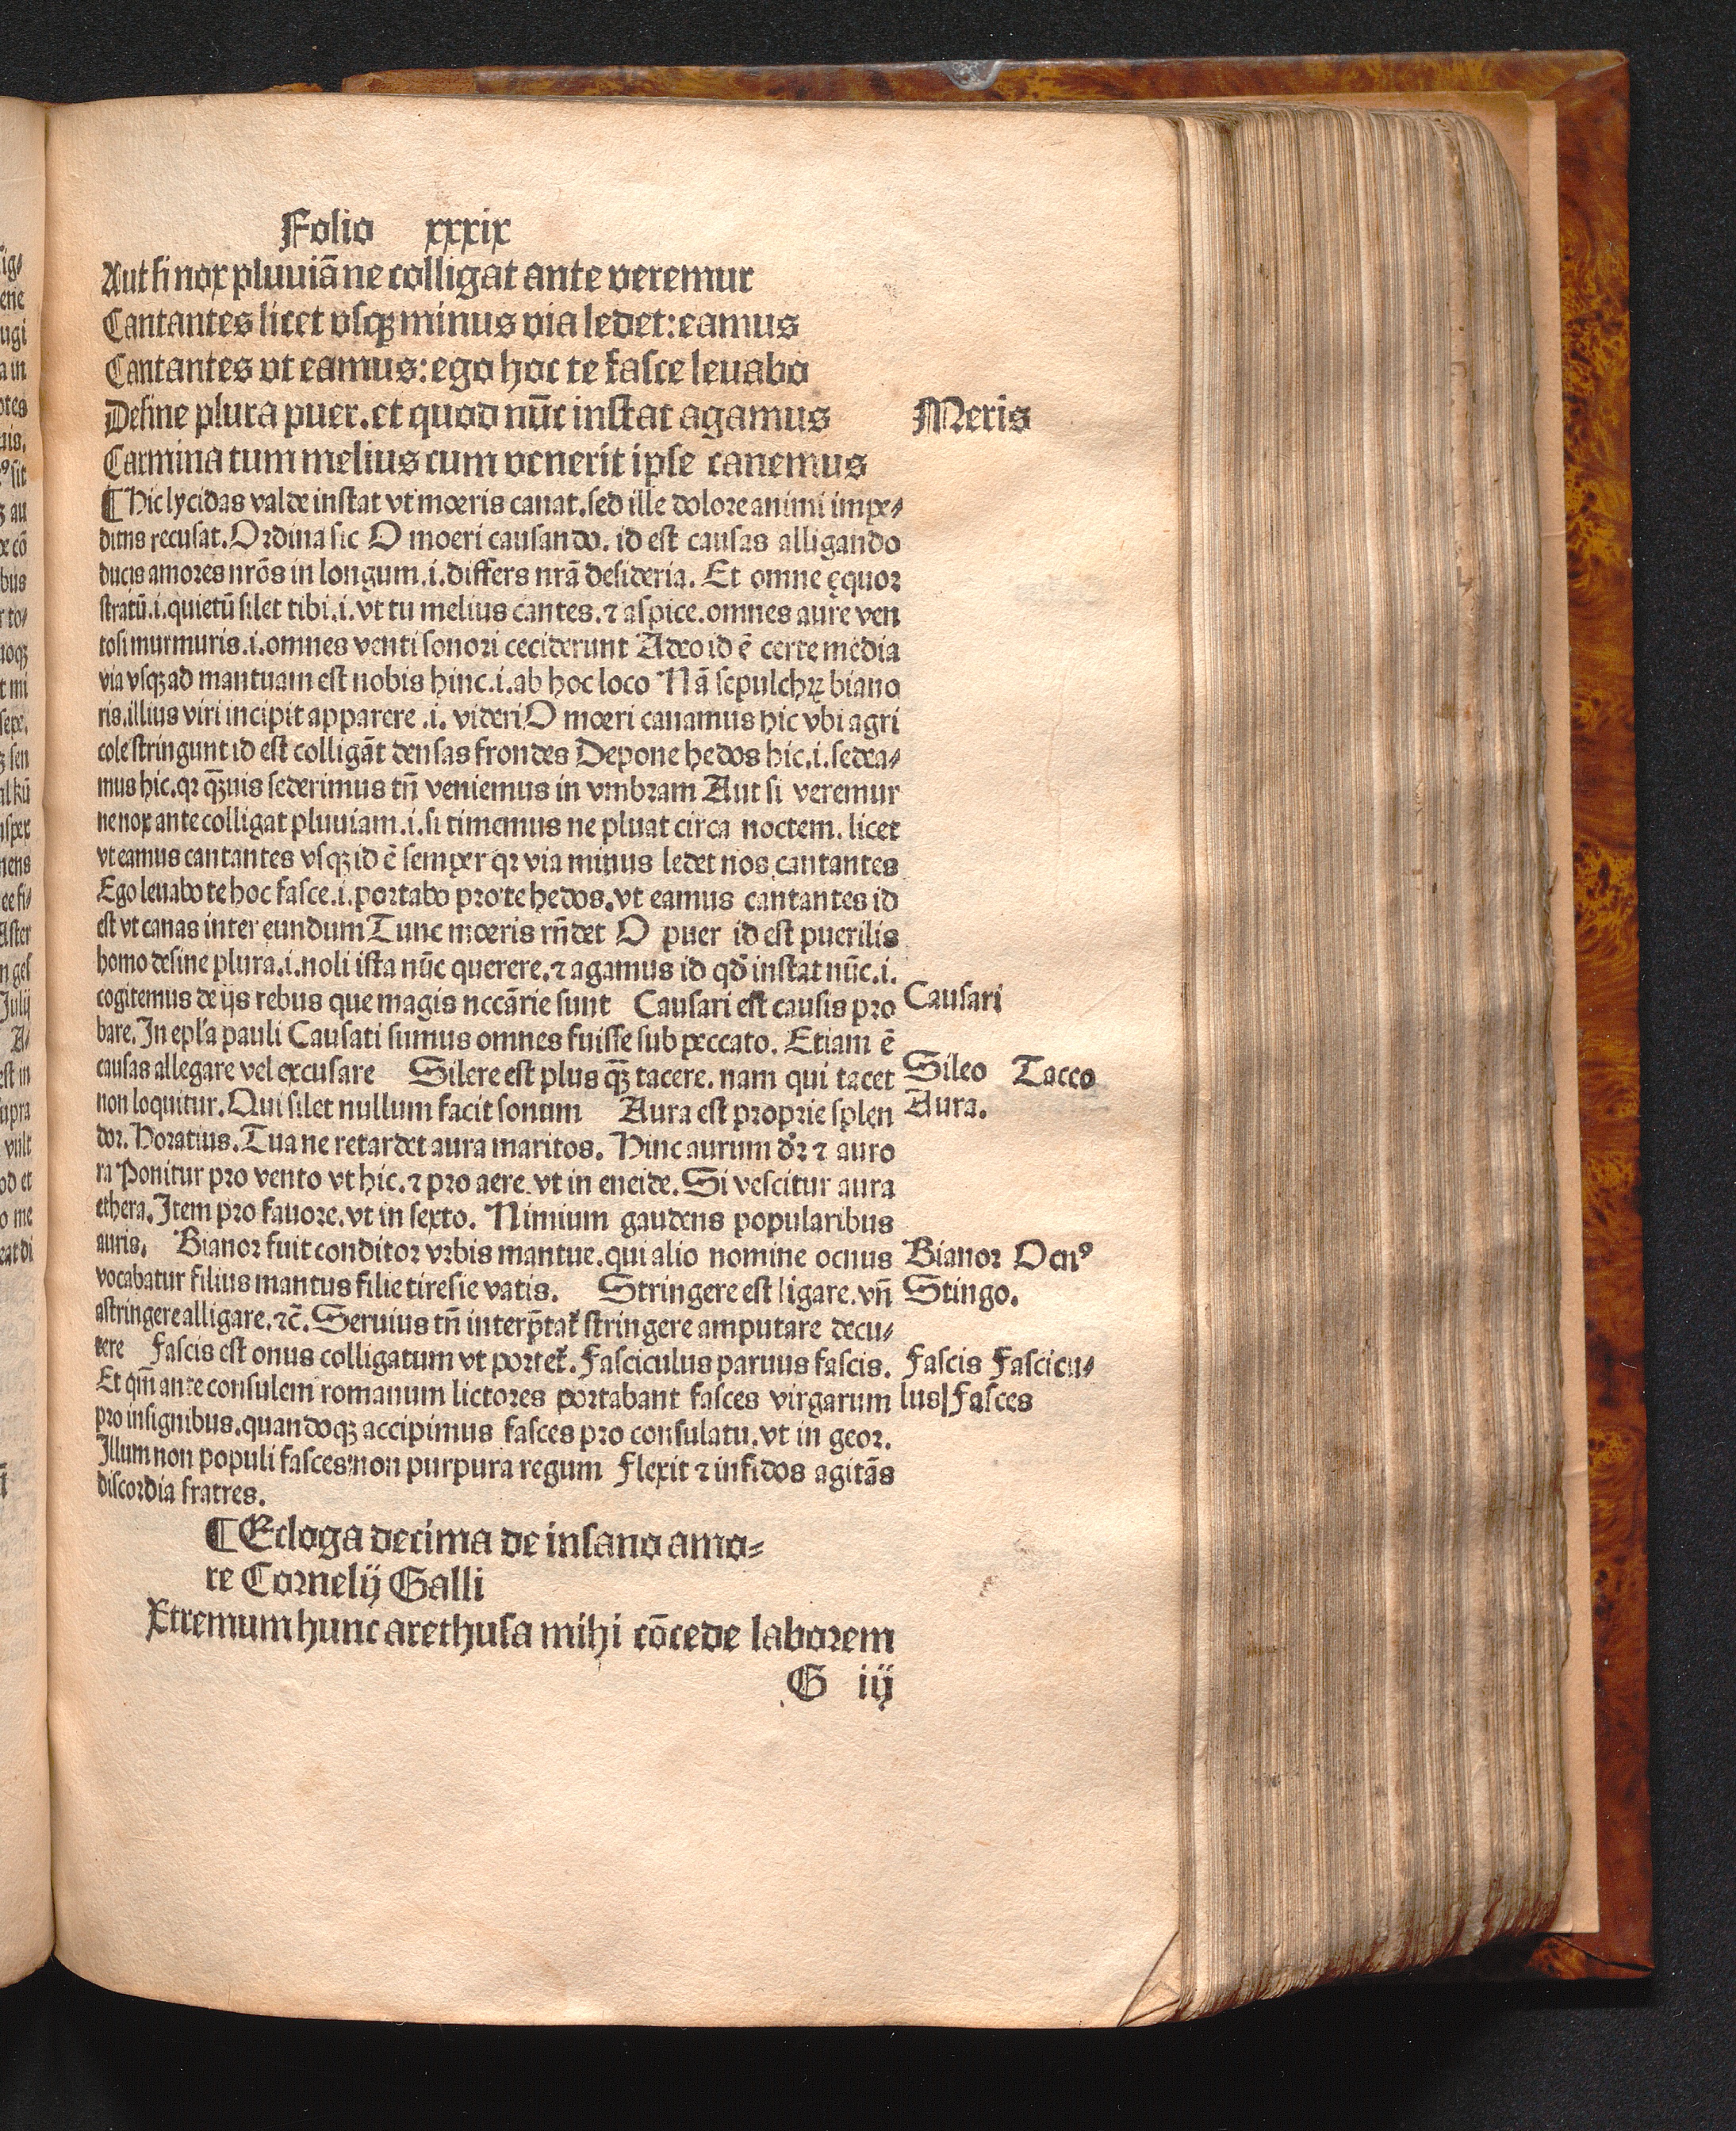 Folio xxxix
Aut si nox pluuiā ne colligat ante veremur
Cantantes licet vsqꝫ minus via ledet: eamus
Cantantes vt eamus: ego hoc te fasce leuabo
Desine plura puer. et quod nūc instat agamus Meris
Carmina tum melius cum venerit ipse canemus
¶ Hic lycidas valde instat vt mœris canat. sed ille dolore animi impe⸗
ditus recusat. Ordina sic O moeri causando. id est causas alligando
ducis amores nr̄os in longum .i. differs nr̄a desideria. Et omne ęquor
stratū .i. quietū silet tibi .i. vt tu melius cantes. ⁊ aspice. omnes aure ven
tosi murmuris .i. omnes venti sonori ceciderunt Adeo id ē certe media
via vsqꝫ ad mantuam est nobis hinc .i. ab hoc loco Nā sepulchꝝ biano
ris. illius viri incipit apparere .i. videri O mœri canamus hic vbi agri
cole stringunt id est colligāt densas frondes Depone hedos hic .i. sedea⸗
mus hic. qꝛ qꝫ̄uis sederimus tn̄ veniemus in vmbram Aut si veremur
ne nox ante colligat pluuiam .i. si timemus ne pluat circa noctem. licet
vt eamus cantantes vsqꝫ id ē semper qꝛ via minus ledet nos cantantes
Ego leuabo te hoc fasce .i. portabo pro te hedos. vt eamus cantantes id
est vt canas inter eundum Tunc mœris rn̄det O puer id est puerilis
homo desine plura .i. noli ista nūc querere. ⁊ agamus id qd̄ instat nūc .i.
cogitemus de ijs rebus que magis nccār̄ie sunt Causari est causis pro Causari
bare. In epl'a pauli Causati sumus omnes fuisse sub peccato. Etiam ē
causas allegare vel excusare Silere est plus qꝫ̄ tacere. nam qui tacet Sileo Tacco
non loquitur. Qui silet nullum facit sonum Aura est proprie splen Aura.
dor. Horatius. Tua ne retardet aura maritos. Hinc aurum dr̄ ⁊ auro
ra Ponitur pro vento vt hic. ⁊ pro aere. vt in eneide. Si vescitur aura
ethera. Item pro fauore. vt in sexto. Nimium gaudens popularibus
auris. Bianor fuit conditor vrbis mantue. qui alio nomine ocnus Bianor Ocnꝰ
vocabatur filius mantus filie tiresie vatis. Stringere est ligare. vn̄ Stingo.
astringere alligare. ⁊c̄. Seruius tn̄ interp̄tať stringere amputare decu⸗
tere Fascis est onus colligatum vt porteť. Fasciculus paruus fascis. Fascis Fascicu⸗
Et qm̄ ante consulem romanum lictores portabant fasces virgarum lus|Fasces
pro insignibus. quandoqꝫ accipimus fasces pro consulatu. vt in geor.
Illum non populi fasces: non purpura regum Flexit ⁊ infidos agitās
discordia fratres.
¶ Ecloga decima de insano amo⸗
re Cornelij Galli
Xtremum hunc arethusa mihi cōcede laborem
G iij